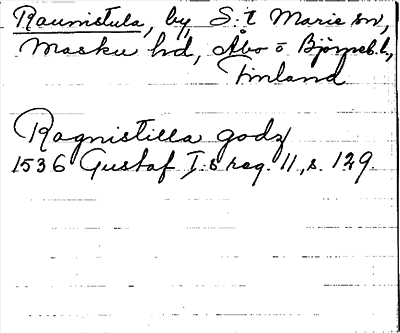 Raunistula, by, S:t Marie sn,
Masku hd, Åbo o Björneb. l,
Finland
Ragnistilla godz
1536 Gustaf I:s reg. 11, s. 129.